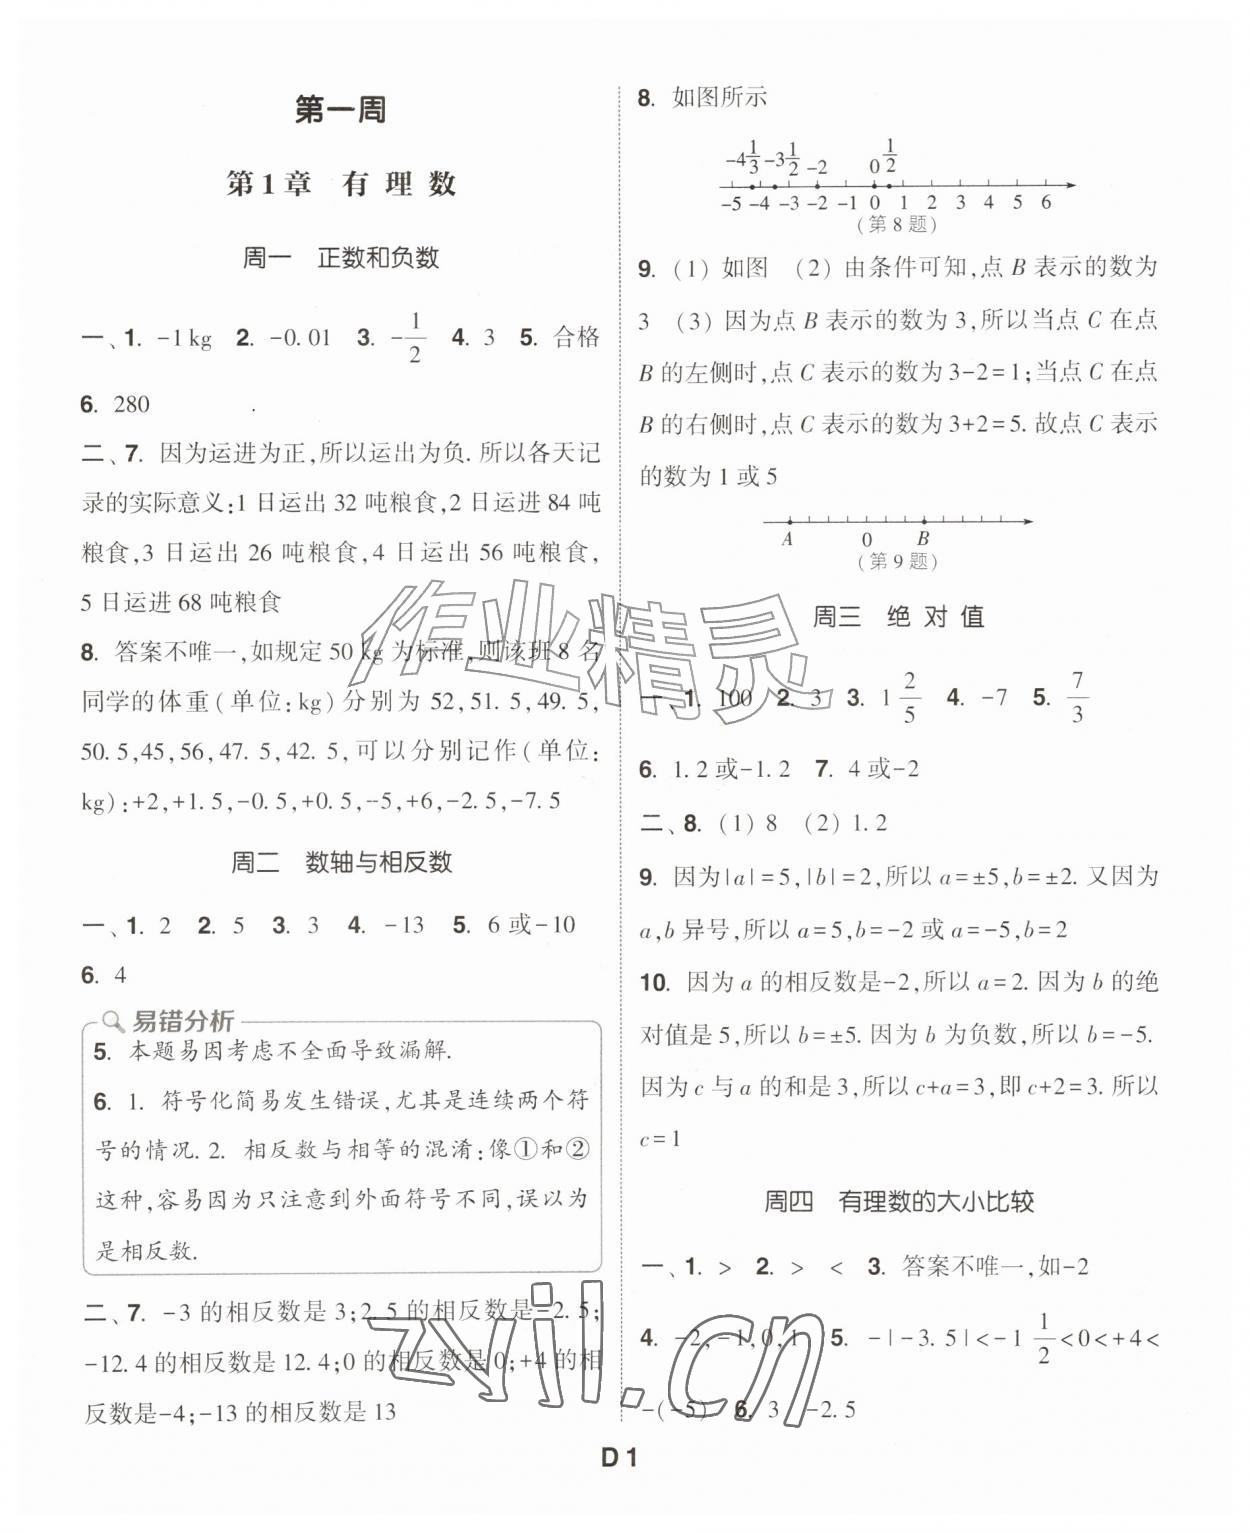 第一周
第1章 有理数
周一 正数和负数
一、1. -1 kg 2. -0.01 3. -1/2 4. 3 5. 合格
6. 280
二、7. 因为运进为正,所以运出为负. 所以各天记
录的实际意义:1 日运出 32 吨粮食,2 日运进 84 吨
粮食,3 日运出 26 吨粮食,4 日运出 56 吨粮食,
5 日运进 68 吨粮食
8. 答案不唯一,如规定 50 kg 为标准,则该班 8 名
同学的体重(单位:kg)分别为 52,51.5,49.5,
50.5,45,56,47.5,42.5,可以分别记作(单位:
kg):+2,+1.5,-0.5,+0.5,-5,+6,-2.5,-7.5
周二 数轴与相反数
一、1. 2 2. 5 3. 3 4. -13 5. 6 或-10
6. 4
易错分析
5. 本题易因考虑不全面导致漏解.
6. 1. 符号化简易发生错误,尤其是连续两个符
号的情况. 2. 相反数与相等的混淆:像①和②
这种,容易因为只注意到外面符号不同,误以为
是相反数.
二、7. -3 的相反数是 3;2.5 的相反数是-2.5;
-12.4 的相反数是 12.4;0 的相反数是 0;+4 的相
反数是-4;-13 的相反数是 13
8. 如图所示
-4 1/3 -3 1/2 -2 0 1/2
-5 -4 -3 -2 -1 0 1 2 3 4 5 6
(第 8 题)
9. (1) 如图 (2) 由条件可知,点 B 表示的数为
3 (3) 因为点 B 表示的数为 3,所以当点 C 在点
B 的左侧时,点 C 表示的数为 3-2=1;当点 C 在点
B 的右侧时,点 C 表示的数为 3+2=5. 故点 C 表示
的数为 1 或 5
A 0 B
(第 9 题)
周三 绝对值
一、1. 100 2. 3 3. 1 2/5 4. -7 5. 7/3
6. 1.2 或-1.2 7. 4 或-2
二、8. (1) 8 (2) 1.2
9. 因为|a|=5,|b|=2,所以 a=±5,b=±2. 又因为
a,b 异号,所以 a=5,b=-2 或 a=-5,b=2
10. 因为 a 的相反数是-2,所以 a=2. 因为 b 的绝
对值是 5,所以 b=±5. 因为 b 为负数,所以 b=-5.
因为 c 与 a 的和是 3,所以 c+a=3,即 c+2=3. 所以
c=1
周四 有理数的大小比较
一、1. > 2. > < 3. 答案不唯一,如-2
4. -2,-1,0,1 5. -|-3.5|<-1 1/2<0<+4<
-(-5) 6. 3 -2.5
D 1
作业精灵
zyjl.cn